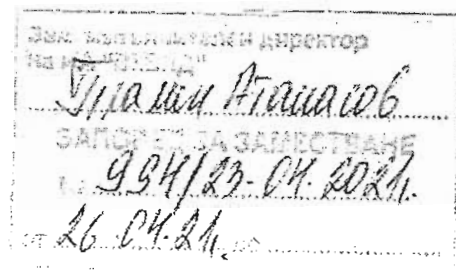 Зам. изпълнителен директор
На
Пламен Атанасов
ЗАПОВЕД ЗА ЗАМЕСТВАНЕ
994/23-04.2021г.
от 26.04.21г. до